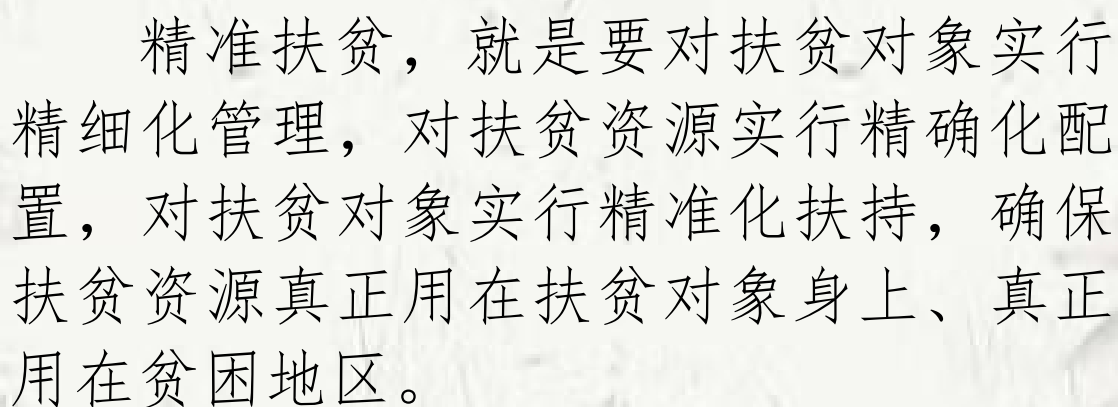 精准扶贫，就是要对扶贫对象实行
精细化管理，对扶贫资源实行精确化配
置，对扶贫对象实行精准化扶持，确保
扶贫资源真正用在扶贫对象身上、真正
用在贫困地区。